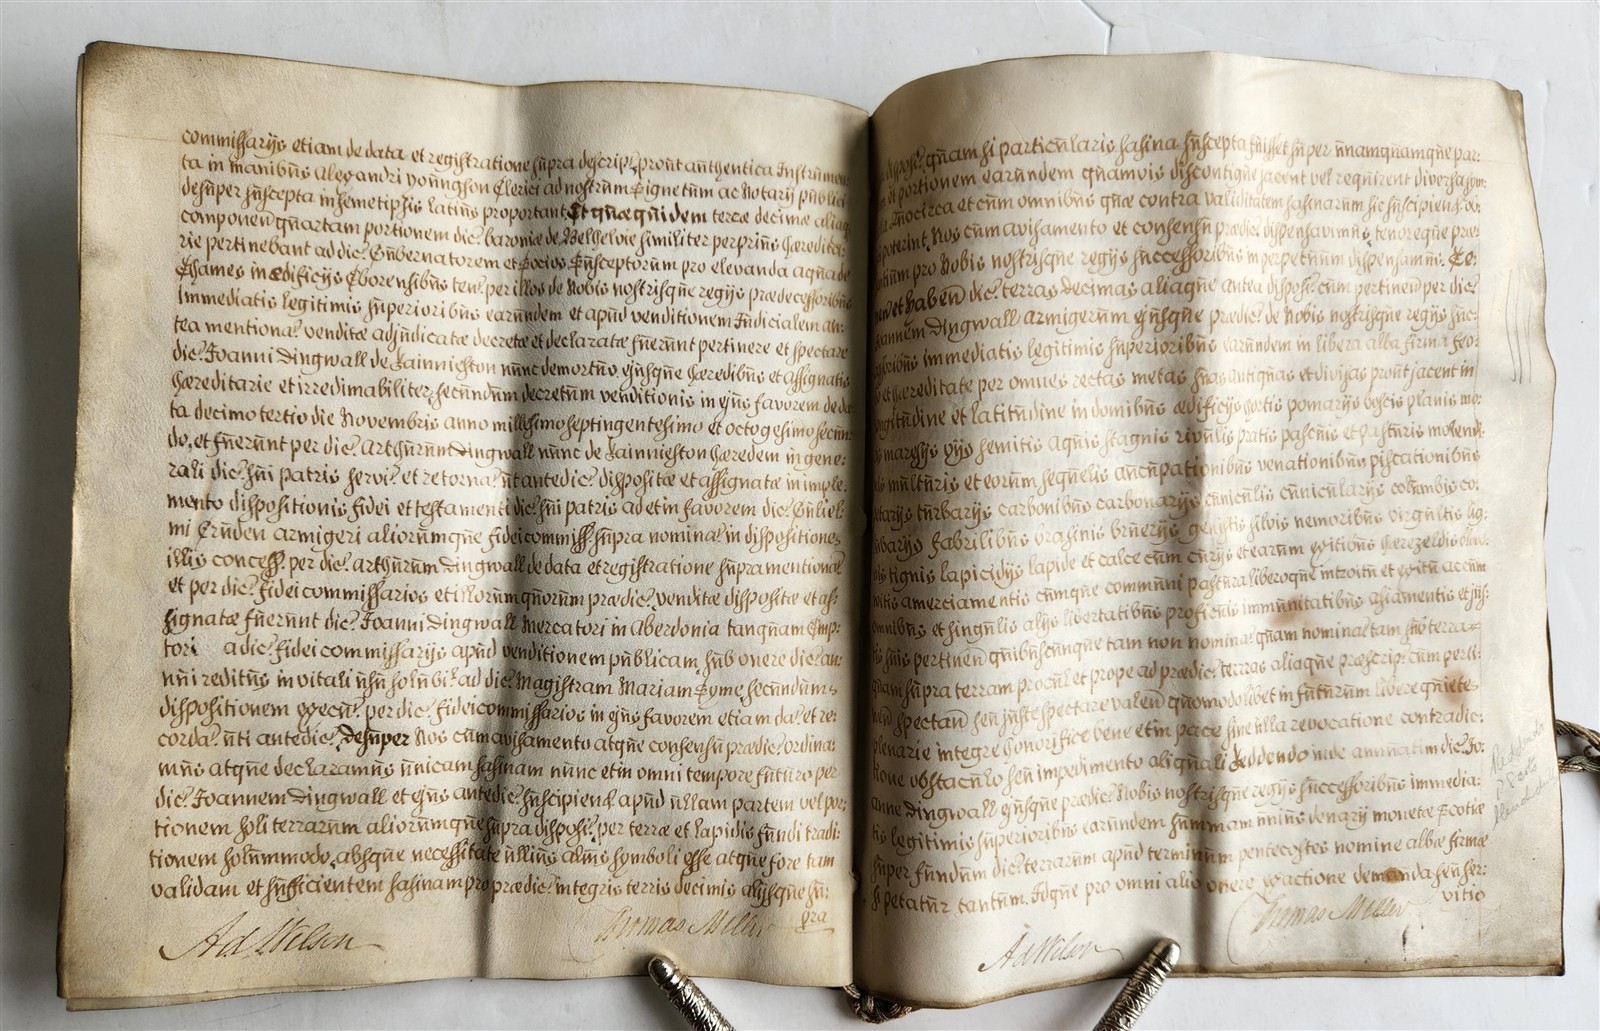 commissarijs etiam de data et registratione supra descript: prout authentica Instrumen:
ta in manibus Alexandri Youngson Clerici ad nostrum Signetum ac Notarij publici
desuper suscepta in semetipsis latius proportant Et quæquidem terræ decimæ aliaq
componen quartam portionem dic: baroniæ de Belhelvie similiter per prius hæredita:
rie pertinebant ad dic: Gubernatorem et Socios Susceptorum pro elevanda aqua de
Thames in ædificijs Eborensibus tent per illos de Nobis nostrisque regijs prædecessoribus
immediatis legitimis superioribus earundem et apud venditionem Judicialem an:
tea mentionat venditæ adjudicatæ decretæ et declaratæ fuerunt pertinere et spectare
dic: Joanni Dingwall de Rainnieston nunc demortuo, ejusque hæredibus et assignatis
hæreditarie et irredimabiliter, secundum decretum venditionis in ejus favorem de da
ta decimo tertio die Novembris anno millesimo septingentesimo et octogesimo secun:
do, et fuerunt per dic: Arthurum Dingwall nunc de Rainnieston hæredem in gene:
rali dic: sui patris servit et retornat ut antedic: dispositæ et assignatæ in imple:
mento dispositionis fidei et testamenti dic: sui patris ad et in favorem dic: Guliel:
mi Cruden armigeri aliorumque fideicommiss: supra nominat in dispositione
illis concess: per dic: Arthurum Dingwall de data et registratione supra mentionat
et per dic: fideicommissarios et illorum quorum prædic: venditæ dispositæ et as:
signatæ fuerunt dic: Joanni Dingwall Mercatori in Aberdonia tanquam Emp:
tori a dic: fideicommissarijs apud venditionem publicam sub onere dic: an:
nui reditus in vitali usu solubil ad dic: Magistram Mariam Syme secundum
dispositionem execut per dic: fideicommissarios in ejus favorem etiam dat et re:
cordat uti antedic: Desuper Nos cum avisamento atque consensu prædic: ordina:
mus atque declaramus unicam sasinam nunc et in omni tempore futuro per
dic: Joannem Dingwall et ejus antedic: suscipiend apud ullam partem vel por:
tionem soli terrarum aliorumque supra disposit per terræ et lapidis fundi tradi:
tionem solummodo, absque necessitate ullius alius symboli esse atque fore tam
validam et sufficientem sasinam pro prædic: integris terris decimis alijsque su:
pra
Ad Wilson Thomas Miller
disposit quam si particularis sasina suscepta fuisset super unamquamque par:
vel portionem earundem quamvis discontigue jacent vel requirent diversa sym:
Quocirca et cum omnibus quæ contra validitatem sasinarum sic suscipiend ob:
poterint Nos cum avisamento et consensu prædic: dispensavimus, tenoreque præ:
sentium pro Nobis nostrisque regijs successoribus in perpetuum dispensamus. Te:
nend et habend dic: terras decimas aliaque antea disposit cum pertinen per dic:
Joannem Dingwall armigerum ejusque prædic: de Nobis nostrisque regijs suc:
cessoribus immediatis legitimis superioribus earundem in libera alba firma feo:
et hæreditate per omnes rectas metas suas antiquas et divisas prout jacent in
longitudine et latitudine in domibus ædificijs hortis pomarijs boscis planis mo:
ris maresijs vijs semitis aquis stagnis rivulis pratis pascuis et pasturis molend:
multuris et eorum sequelis aucupationibus venationibus piscationibus
petarijs turbarijs carbonibus carbonarijs cuniculis cunicularijs columbis co:
lumbarijs fabrilibus brasinis bruerijs genistis silvis nemoribus virgultis lig:
nis tignis lapicidijs lapide et calce cum curijs et earum exitibus herezeldis
amerciamentis cumque communi pastura liberoque introitu et exitu ac cum
omnibus et singulis alijs libertatibus proficuis immunitatibus asiamentis et jus:
tis suis pertinen quibuscunque tam non nominat quam nominat tam subter terra
quam supra terram procul et prope ad prædic: terras aliaque præscript cum perti:
nen spectan seu juste spectare valen quomodolibet in futurum libere quiete
plenarie integre honorifice bene et in pace sine ulla revocatione contradic:
tione obstaculo seu impedimento aliquali Reddendo inde annuatim dic: Jo:
anne Dingwall ejusque prædic: Nobis nostrisque regijs successoribus immedia:
tis legitimis superioribus earundem summam unius denarij monetæ Scotiæ
super fundum dic: terrarum apud terminum pentecostes nomine albæ firmæ
si petatur tantum. Idque pro omni alio onere exactione demanda seu ser:
vitio
Ad Wilson Thomas Miller
Reddendo